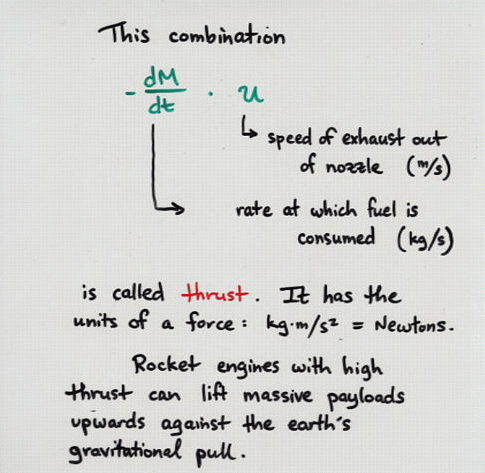 This combination
- dM/dt · u
↳ speed of exhaust out
of nozzle (m/s)
rate at which fuel is
consumed (kg/s)
is called thrust. It has the
units of a force: kg·m/s² = Newtons.
Rocket engines with high
thrust can lift massive payloads
upwards against the earth's
gravitational pull.